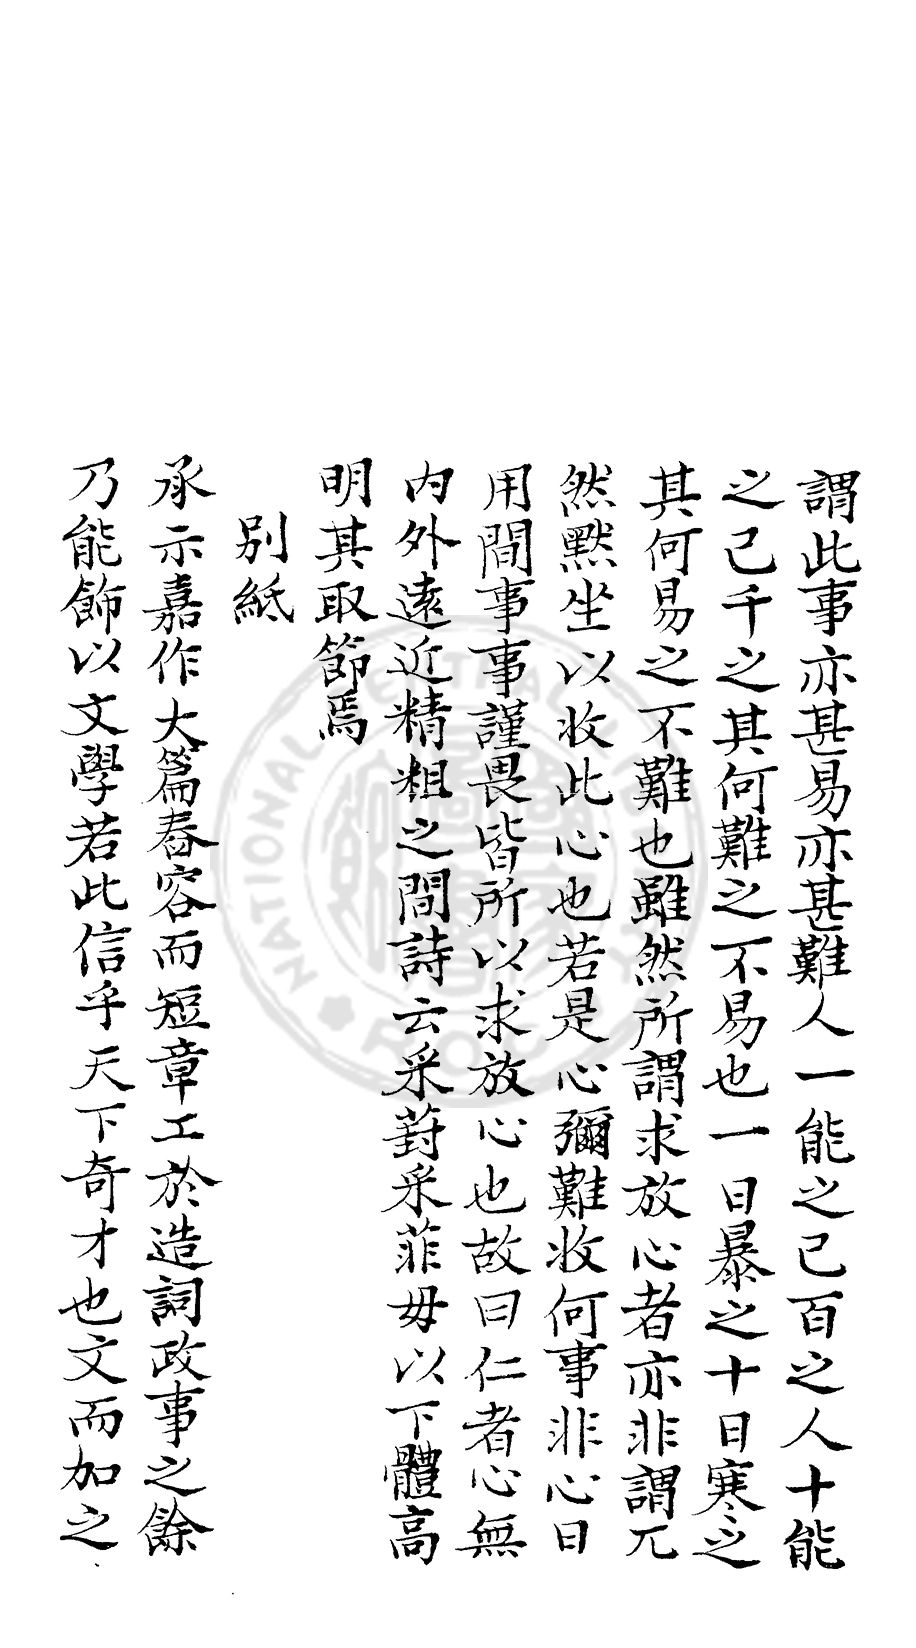 謂此事亦甚易亦甚難人一能之己百之人十能
之己千之其何難之不易也一日暴之十日寒之
其何易之不難也雖然所謂求放心者亦非謂兀
然默坐以收此心也若是心彌難收何事非心日
用間事事謹畏皆所以求放心也故曰仁者心無
內外遠近精粗之間詩云采葑采菲毋以下體高
明其取節焉
別紙
承示嘉作大篇舂容而短章工於造詞政事之餘
乃能飾以文學若此信乎天下奇才也文而加之
NATIONAL CENTRAL LIBRARY
R.O.C.